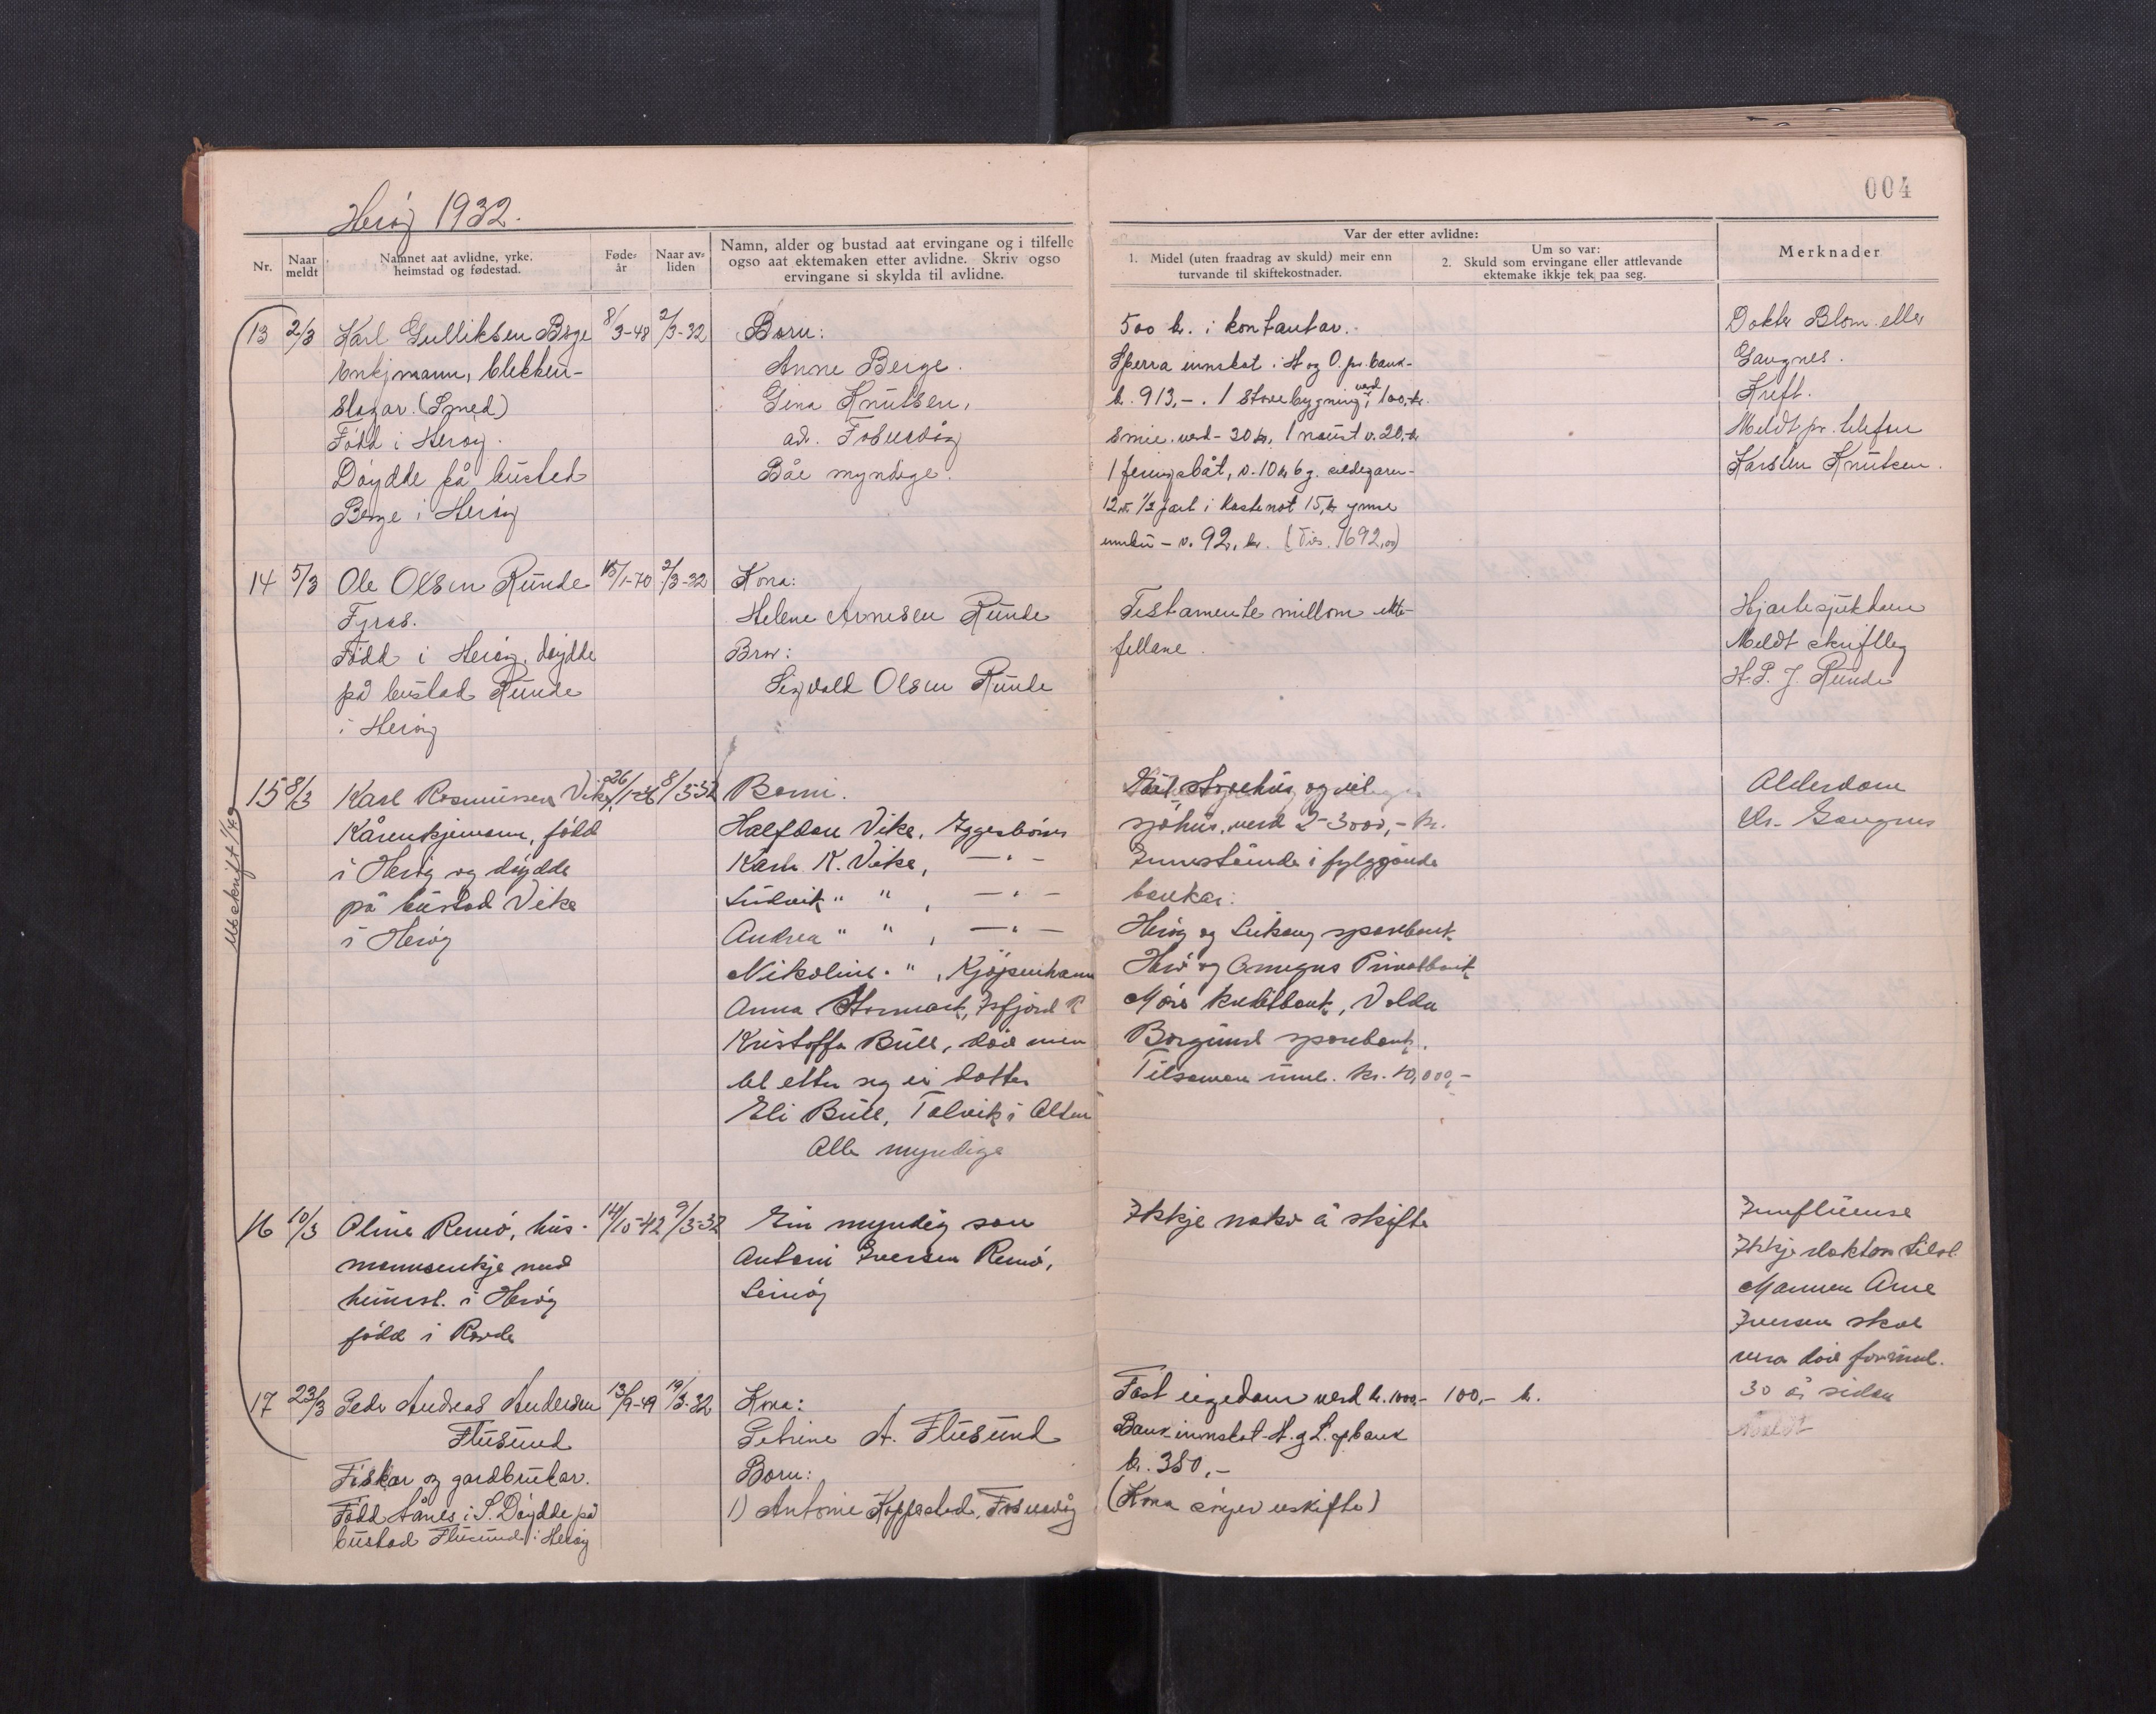 004
Herøy 1932.
Nr.
Naar meldt
Namnet aat avlidne, yrke. heimstad og fødestad.
Føde- år
Naar av- liden
Namn, alder og bustad aat ervingane og i tilfelle
ogso aat ektemaken etter avlidne. Skriv ogso
ervingane si skylda til avlidne.
Var der etter avlidne:
1. Midel (uten fraadrag av skuld) meir enn
turvande til skiftekostnader.
Um so var:
2. Skuld som ervingane eller attlevande
ektemake ikkje tek paa seg.
Merknader
Utskrift 1/4 49
13 2/3 Karl Gulliksen Berge 8/3-48 2/3-32
enkjmann, blekken-
slagar. (Smed)
Född i Heröy.
Döydde på bustad
Berge i Heröy
Born:
Anne Berge.
Gina Knutsen,
ad. Fosnavåg
Båe myndige.
500 kr. i kontantar.
Sperra innskot i H og O. pr. bank-
kr. 913,-. 1 stovebygning, verd 100,-kr.
smie verd - 30 kr, 1 naust v. 20,-kr
1 feringsbåt, v. 10 kr 6 g. sildegarn-
12,- 1/2 part i kastenot 15,kr ymse
innbu - v. 92, kr. (Tils. 1692,00)
Dokter Blom eller
Gangnes.
Kreft.
Meldt pr. telefon
Karsten Knutsen.
14 5/3 Ole Olsen Runde 15/1-70 2/3-32
Fyras.
Född i Heröy, döydde
på bustad Runde
i Heröy
Kona:
Helene Arnesen Runde
Bror:
Sigvald Olsen Runde
Testamente millom ekte-
fellane.
Hjartesjukdom
Meldt skriftleg
H. P. J. Runde
15 8/3 Karl Rasmussen Vike, 26/1-46 8/3-32
Kårenkjemann, född
i Heröy og döydde
på bustad Vike
i Heröy
Born.
Halfdan Vike, Eggesbönes
Karl K. Vike, — " —
Ludvik " " , — " —
Andrea " " , — " —
Nikoline " , Kjöpenhamn
Anna Stormark, Isfjord R
Kristoffa Bull, död men
let etter seg ei dotter
Eli Bull, Talvik i Alten
Alle myndige
sjöhus, verd 2-3000,- kr.
Innestående i fylgjande
bankar:
Heröy og Leikong sparebank
Herö og Omegns Privatbank
Möre kreditbank, Volda
Borgund sparebank.
Tilsaman uml. kr. 40,000,-
Alderdom
Dr. Gangnes
16 10/3 Oline Remö, hus- 14/10-42 9/3-32
mannsenkje med
heimst. i Heröy
född i Rovde
Ein myndig son
Antoni Iversen Remö,
Leinöy
Ikkje noko å skifte
Innfluensa
Ikkje doktor tilst.
Mannen Arne
Iversen skal
vera död for uml.
30 år sidan
17 23/3 Peder Andreas Andersen 13/9-49 19/3-32
Flusund
Fiskar og gardbrukar.
Född Aanes i S. Döydde på
bustad Flusund i Heröy
Kona:
Petrine A. Flusund
Born:
1) Antonie Koppstad, Fosnavåg
Fast eigedom verd kr. 1000,- 100,- kr.
Bank-innskot H. g L. spbank
kr. 380,-
(Kona sitjer uskifta)
Meldt